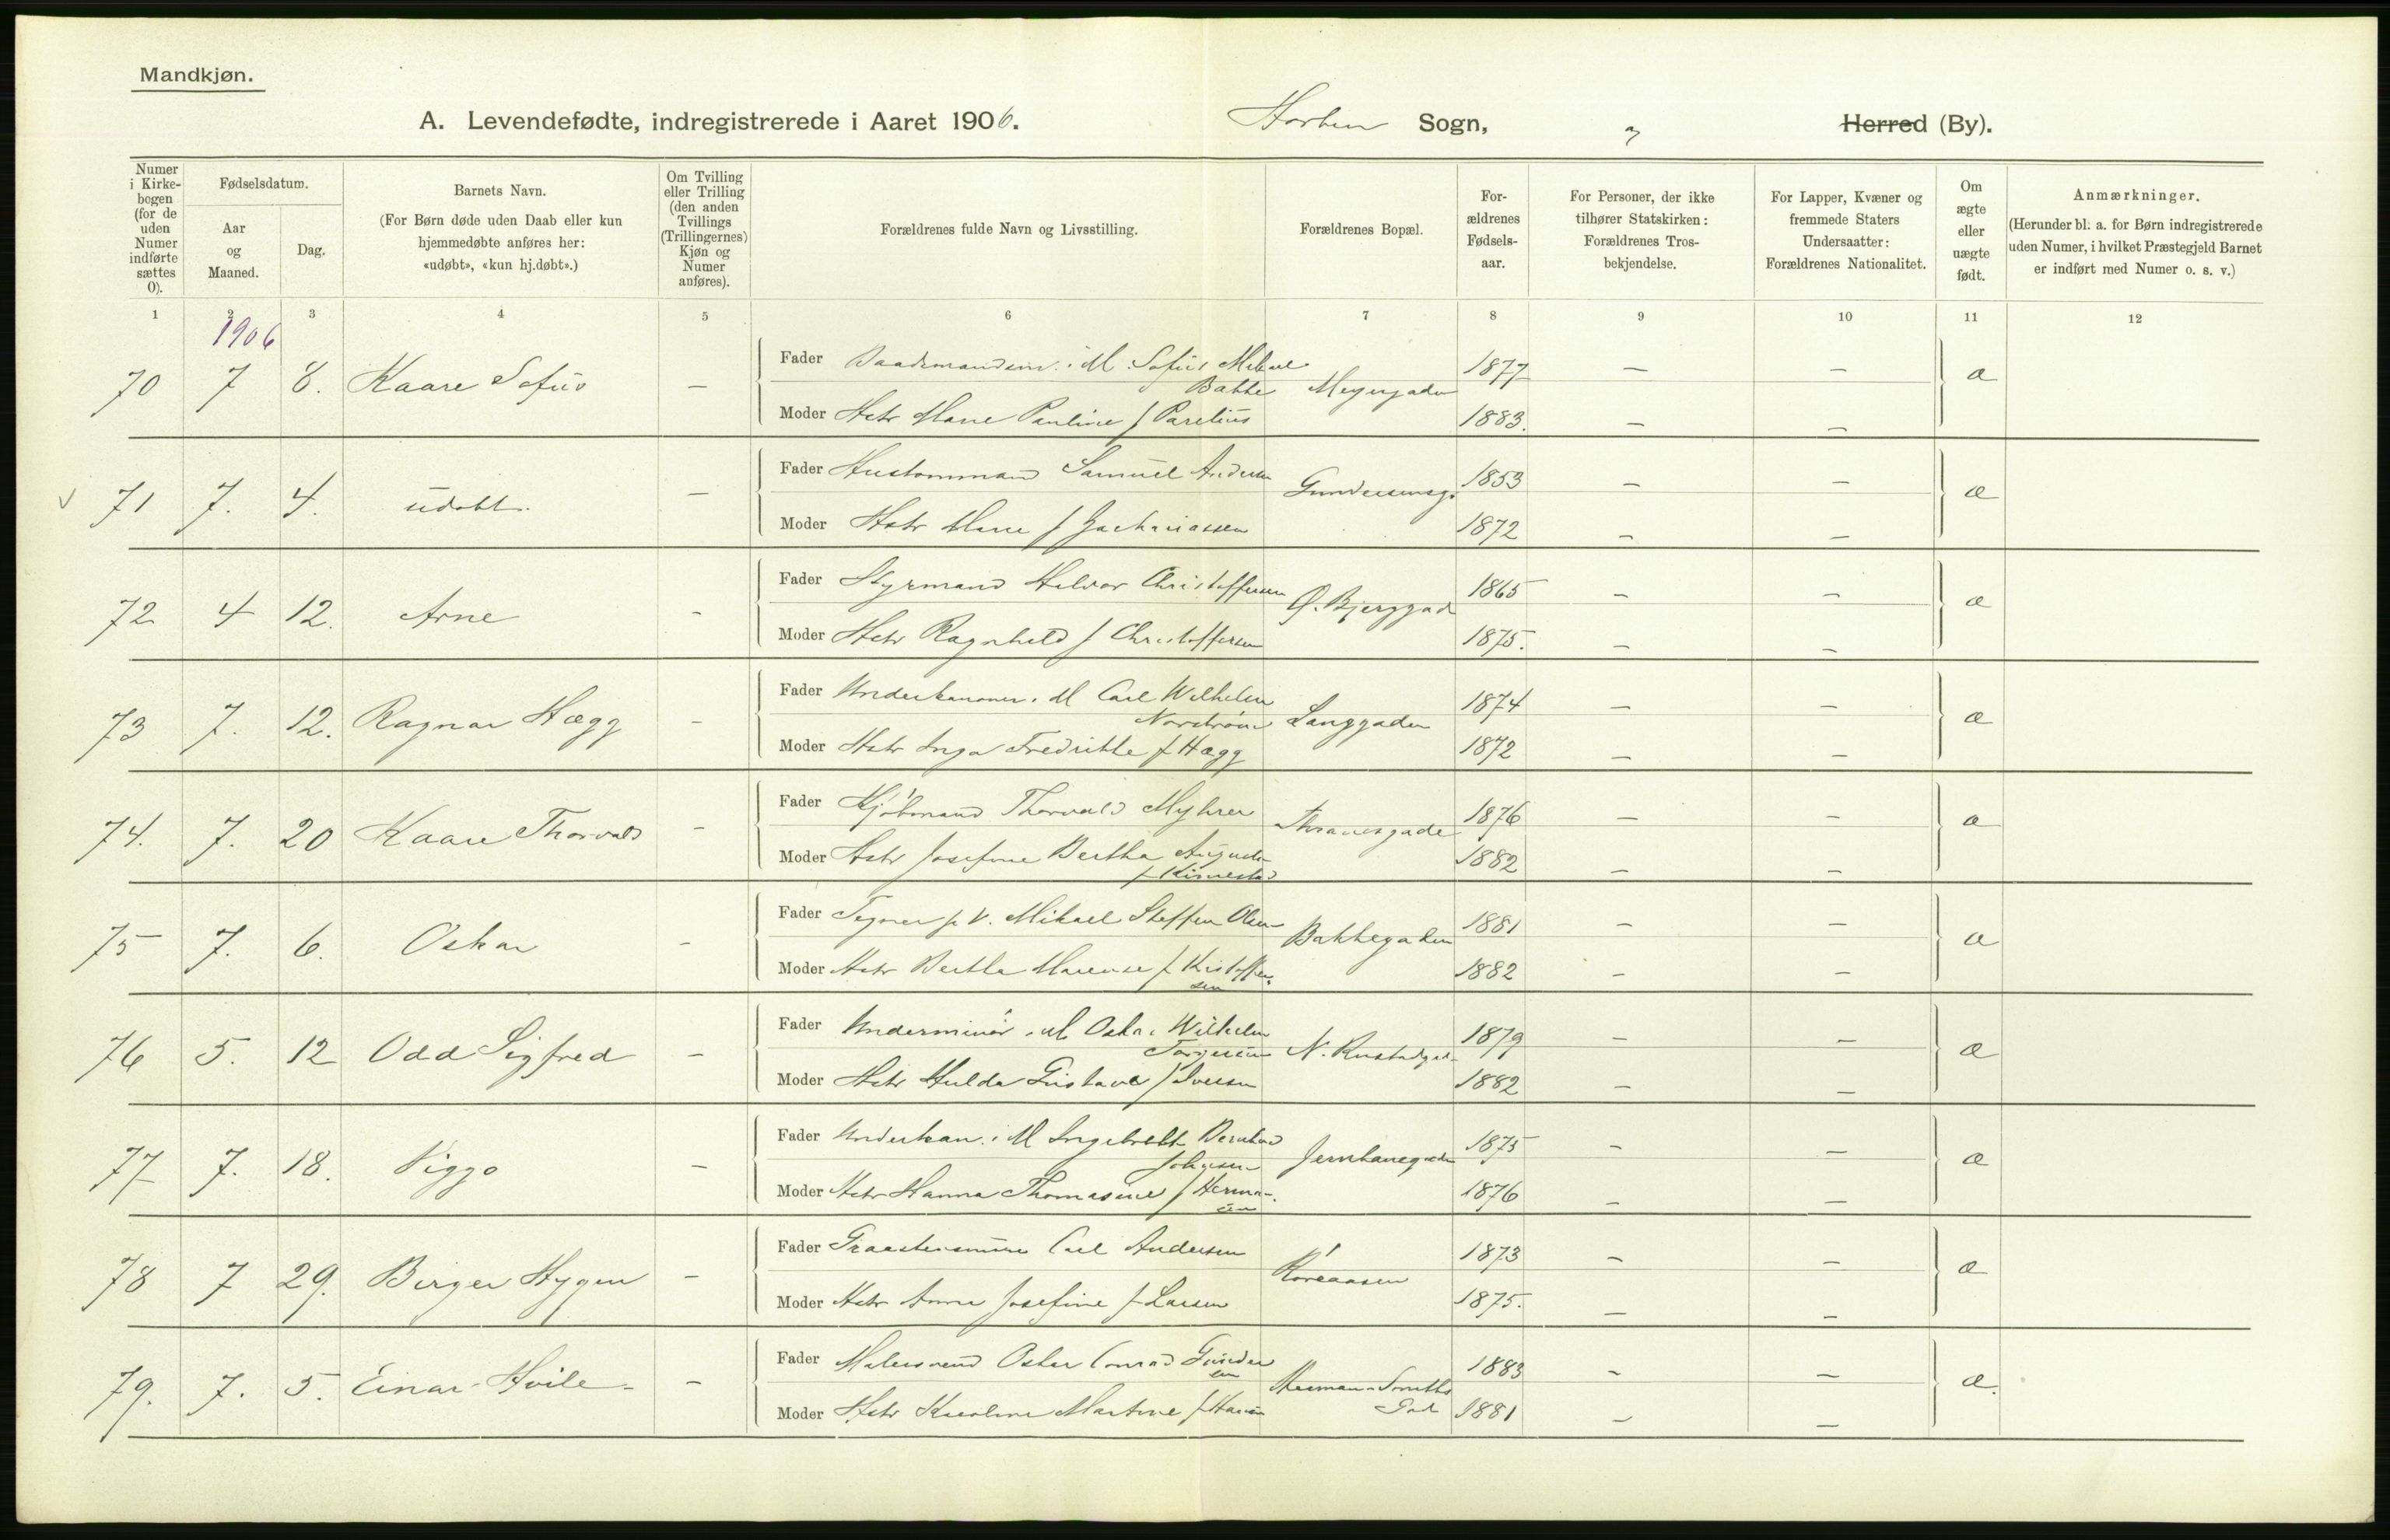 Mandkjøn.
A. Levendefødte, indregistrerede i Aaret 1906. Horten Sogn, " Herred (By).
Numer i Kirkebogen (for de uden Numer indførte sættes 0).
Fødselsdatum.
Aar og Maaned.
Dag.
Barnets Navn.
(For Børn døde uden Daab eller kun hjemmedøbte anføres her: «udøbt», «kun hj.døbt».)
Om Tvilling eller Trilling (den anden Tvillings (Trillingernes) Kjøn og Numer anføres).
Forældrenes fulde Navn og Livsstilling.
Forældrenes Bopæl.
For-ældrenes Fødsels-aar.
For Personer, der ikke tilhører Statskirken: Forældrenes Tros-bekjendelse.
For Lapper, Kvæner og fremmede Staters Undersaatter: Forældrenes Nationalitet.
Om ægte eller uægte født.
Anmærkninger.
(Herunder bl. a. for Børn indregistrerede uden Numer, i hvilket Præstegjeld Barnet er indført med Numer o. s. v.)
1 2 3 4 5 6 7 8 9 10 11 12
1906
70 7 8. Kaare Sofus — Fader i M. Sofus Mikael Bakke Meyergaden 1877 — — æ
Moder Hstr Marie Pauline f Parelius 1883. — —
v 71 7. 4. udøbt. — Fader Samuel Andersen Gundersensg. 1853 — — æ
Moder Hstr Marie f Zachariassen 1872 — —
72 4 12. Arne - Fader Styrmand Halvor Christoffersen Ø. Bjerggad 1865 — — æ
Moder Hstr Ragnhild f Christoffersen 1875. — —
73 7. 12. Ragnar Hægg - Fader Underkanoner i M Carl Wilhelm Norstrøm Langgaden 1874 — — æ
Moder Hstr Inga Fredrikke f Hægg 1872 — —
74. 7. 20 Kaare Thorvald - Fader Kjøbmand Thorvald Myhrer Thranesgade 1876 — — æ
Moder Hstr Josefine Bertha Augusta f 1882 — —
75 7. 6. Oskar - Fader Tegner p. V. Mikael Steffen Olsen Bakkegaden 1881 — — æ
Moder Hstr Bertha Marense f Kristoffersen 1882 — —
76 5. 12 Odd Sigfred - Fader Underminør i M Oskar Wilhelm Torgersen N. Rustadgad 1879 — — æ
Moder Hstr Hulda Gustava f Iversen 1882 — —
77 7. 18. Viggo - Fader Underkan. i M Ingebrekt Bernhard Johnsen Jernbanegaden 1875 — — æ
Moder Hstr Hanna Thomasine f Hermansen 1876 — —
78 7 29. Birger Hygen - Fader Carl Andersen Røreaasen 1873 — — æ
Moder Hstr Anne Josefine f Larsen 1875. — —
79. 7. 5. Einar Hvile - - Fader Malersvend Oskar Conrad Gundersen Herman Smiths Gad 1883 — — æ.
Moder Hstr Karoline Martine f Hansen 1881 — —